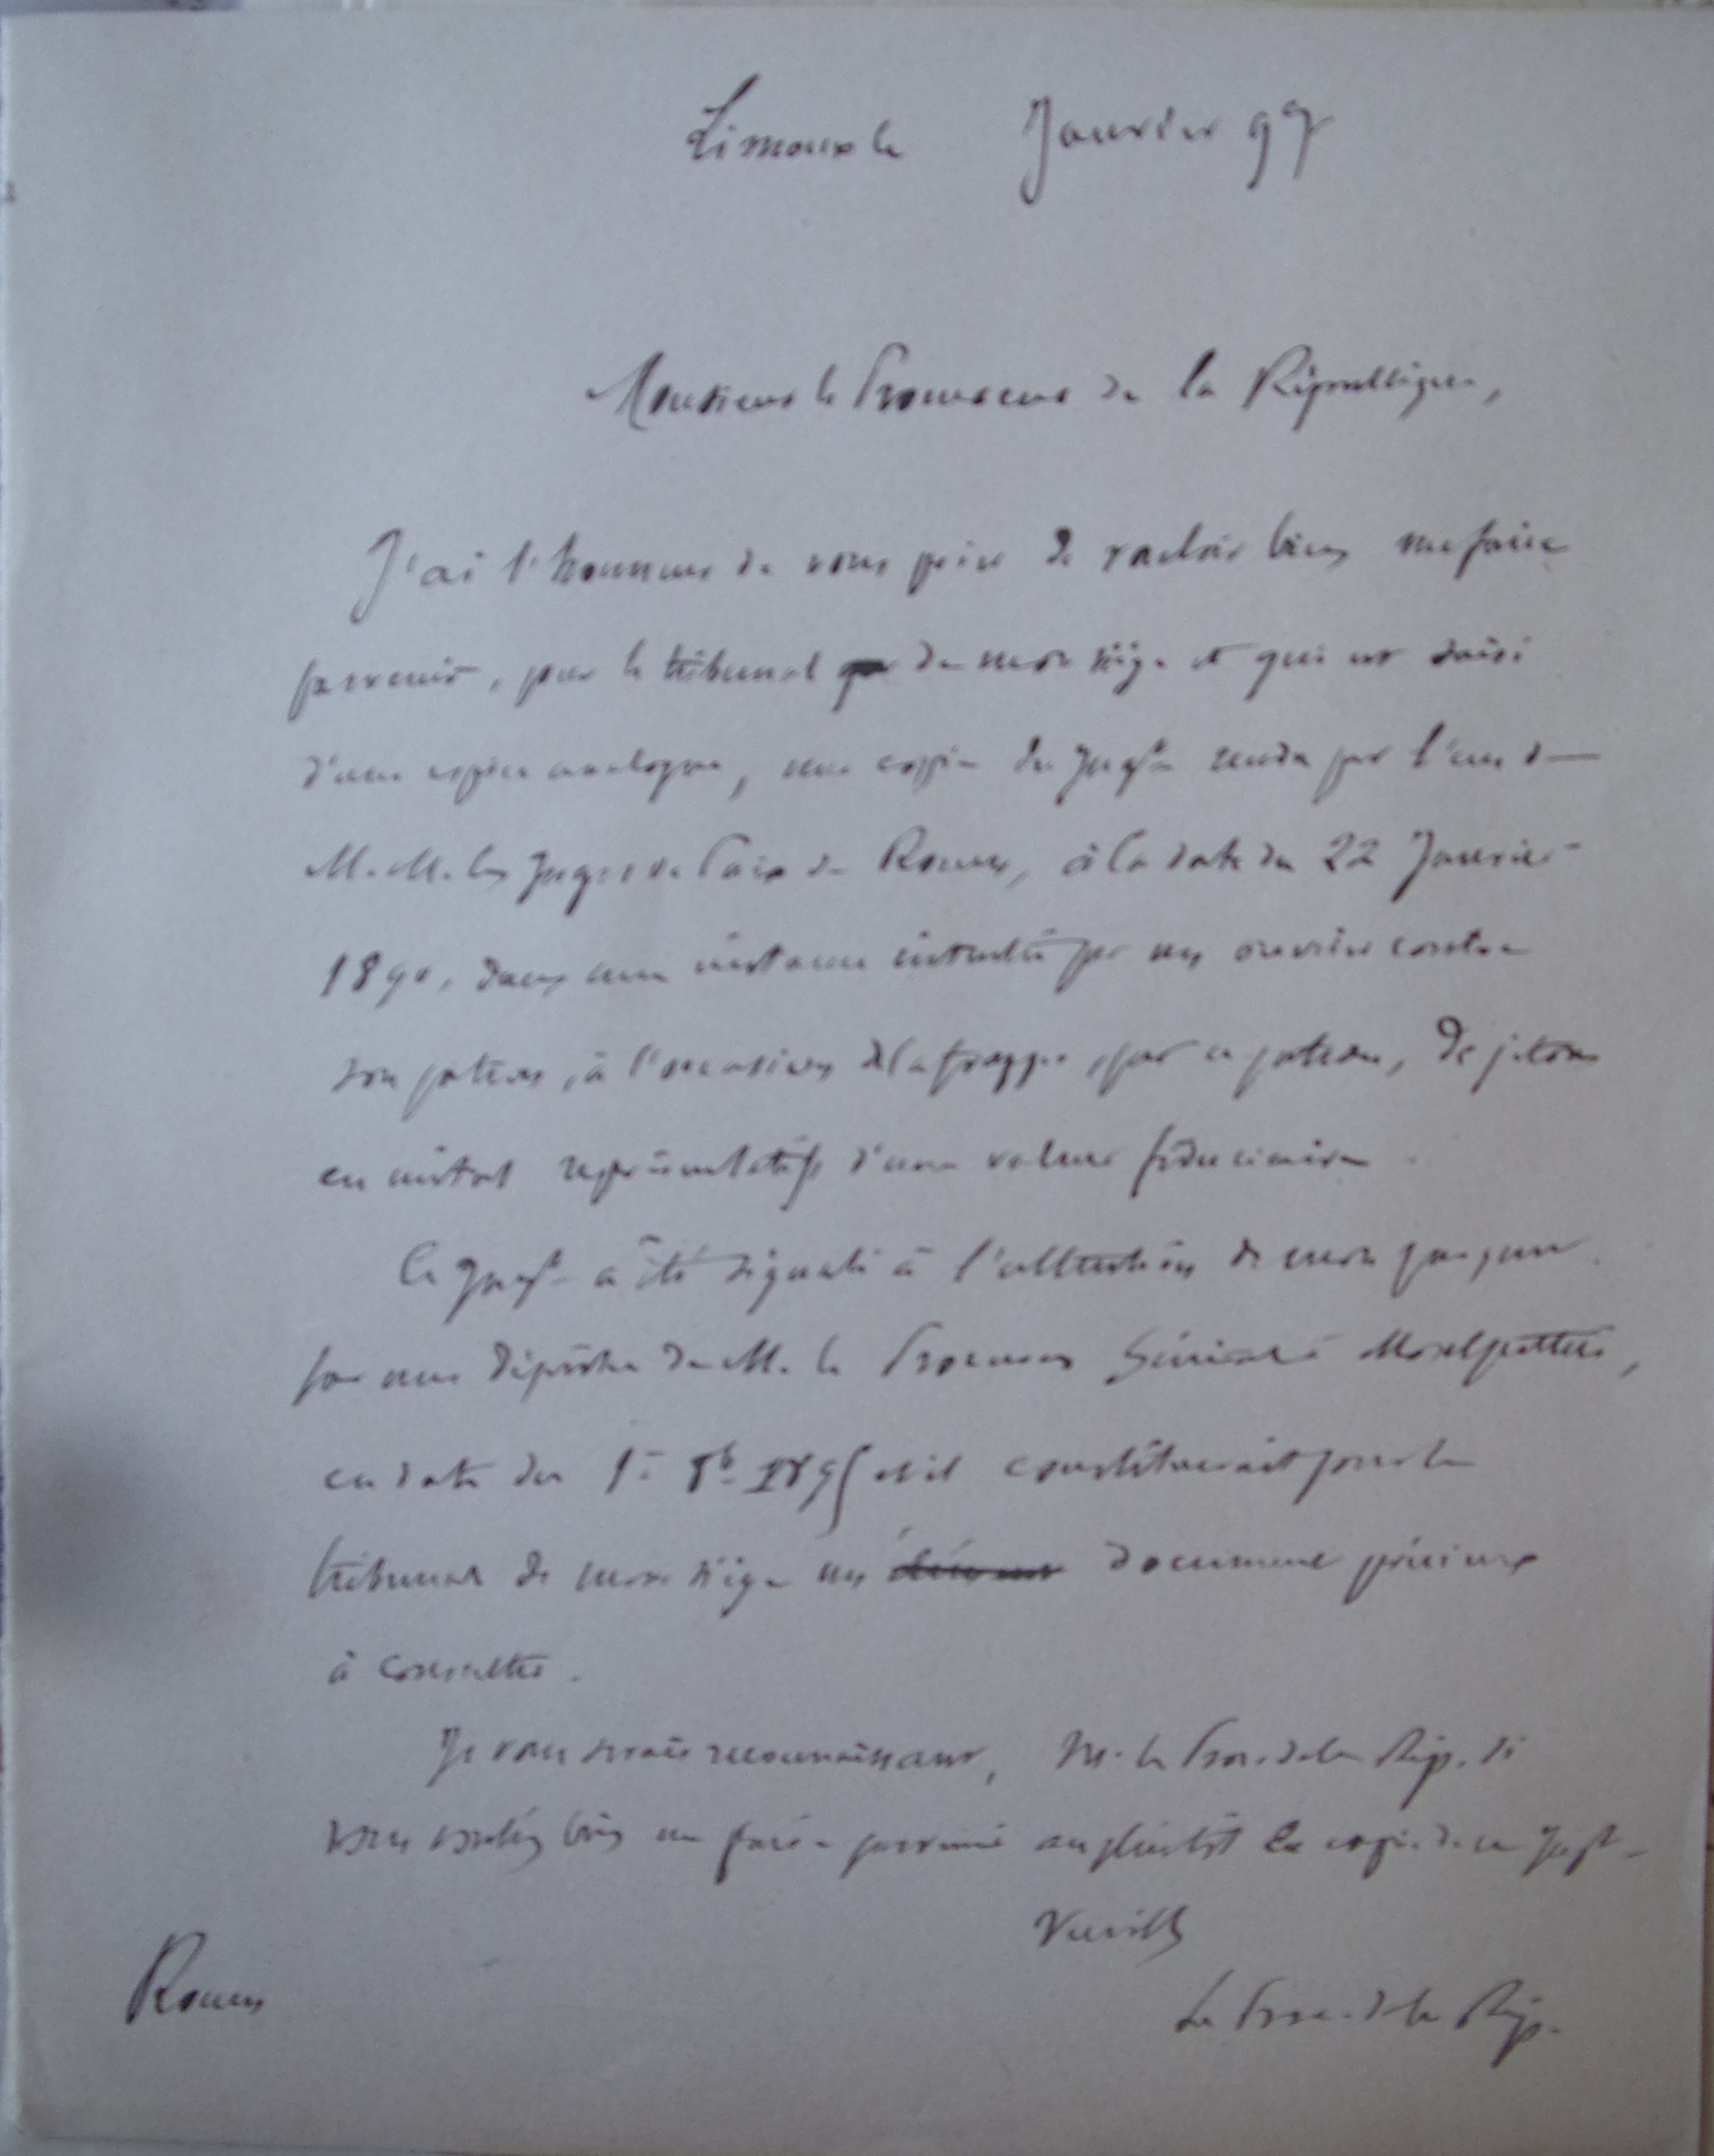 Limoux le Janvier 97
Monsieur le Procureur de la République,
J'ai l'honneur de vous prier de vouloir bien me faire
parvenir, pour le tribunal de mon siège et qui est saisi
d'une espèce analogue, une copie du Jugt rendu par l'un de
M.M. les Juges de Paix de Rouen, à la date du 22 Janvier
1890, dans une instance intentée par un ouvrier contre
son patron, à l'occasion de la frappe, par ce patron, de jetons
en métal représentatifs d'une valeur fiduciaire.
Ce Jugt a été signalé à l'attention de mon parquet
par une dépêche de M. le Procureur Général à Montpellier,
en date du 1er 8b et il constituerait pour le
tribunal de mon siège un document précieux
à consulter.
Je vous serais reconnaissant, M. le Proc. de la Rép. si
vous vouliez bien me faire parvenir au plus tôt la copie de ce Jugt
Veuill
Rouen
Le Proc. de la Rép.